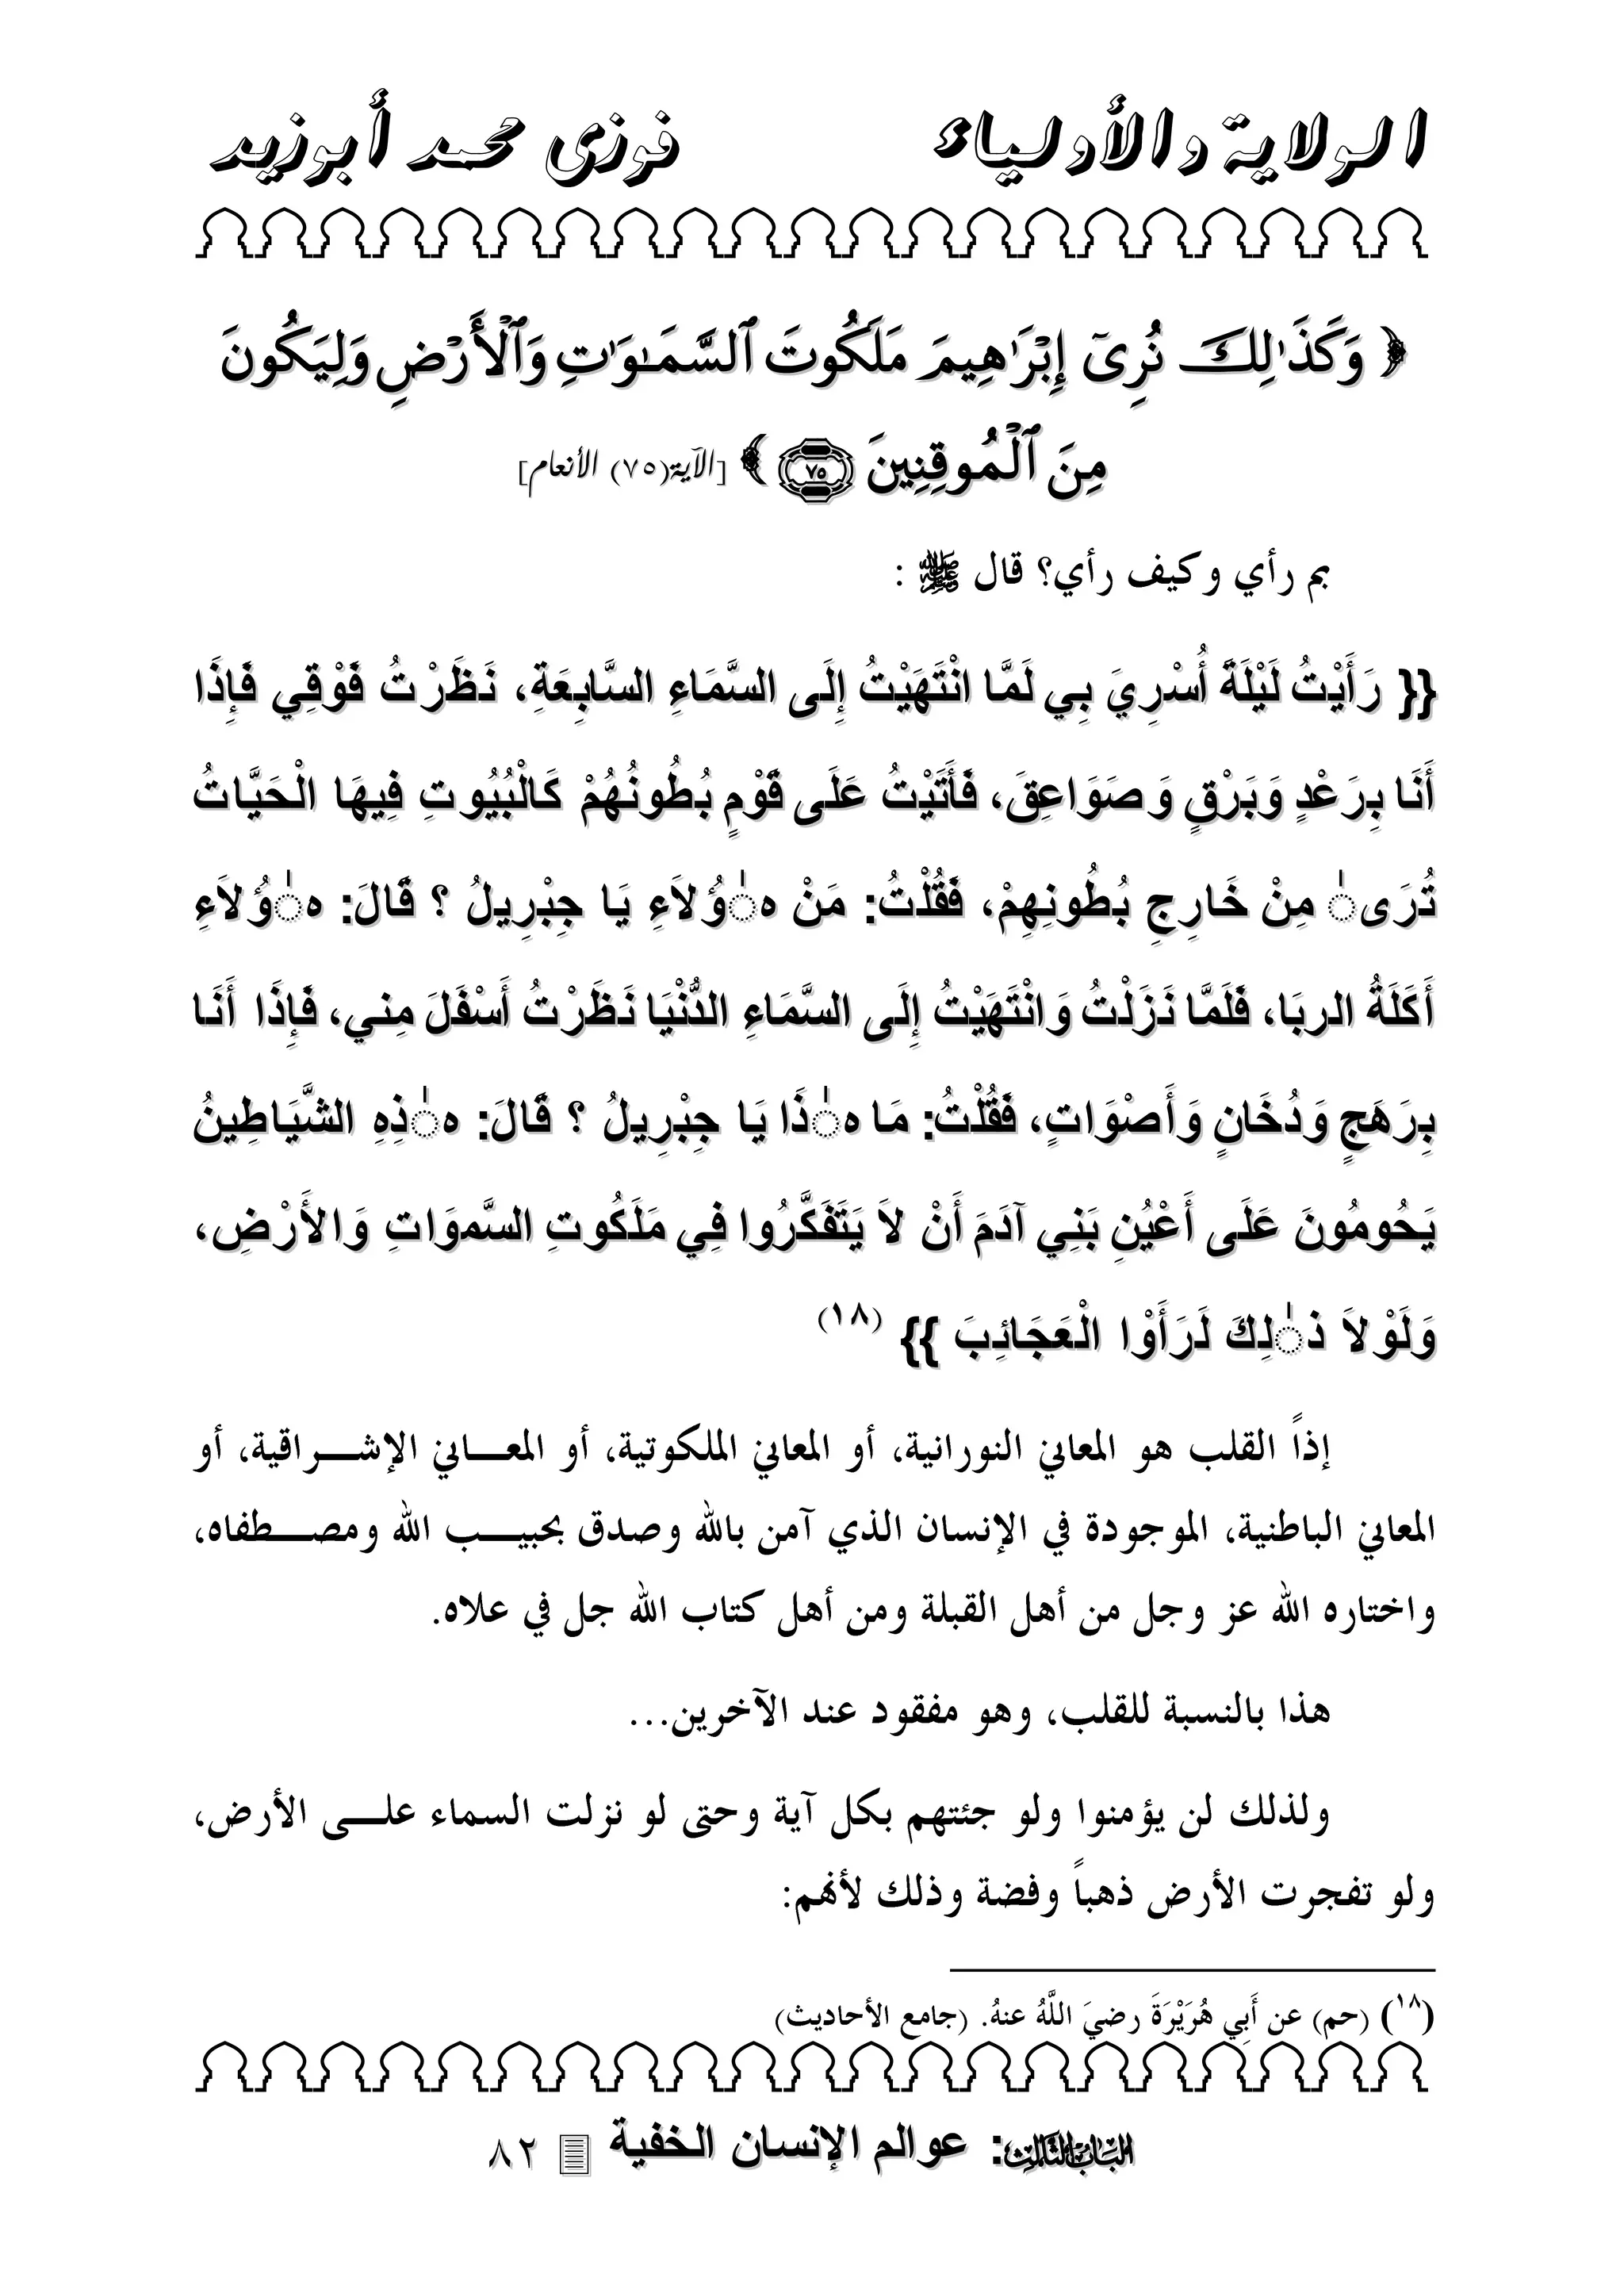 الولاية والأولياء فوزى محمد أبوزيد
﴿ وَكَذَٰلِكَ نُرِىٓ إِبْرَٰهِيمَ مَلَكُوتَ ٱلسَّمَـٰوَٰتِ وَٱلْأَرْضِ وَلِيَكُونَ
مِنَ ٱلْمُوقِنِينَ ۝٧٥ ﴾ [الآية(٧٥) الأنعام]
بم رأي وكيف رأي؟ قال ﷺ :
{{ رَأَيْتُ لَيْلَةَ أُسْرِيَ بِي لَمَّا انْتَهَيْتُ إِلَى السَّمَاءِ السَّابِعَةِ، نَظَرْتُ فَوْقِي فَإِذَا
أَنَا بِرَعْدٍ وَبَرْقٍ وَصَوَاعِقَ، فَأَتَيْتُ عَلَى قَوْمٍ بُطُونُهُمْ كَالْبُيُوتِ فِيهَا الْحَيَّاتُ
تُرَىٰ مِنْ خَارِجِ بُطُونِهِمْ، فَقُلْتُ: مَنْ هٰؤُلَاءِ يَا جِبْرِيلُ ؟ قَالَ: هٰؤُلَاءِ
أَكَلَةُ الربَا، فَلَمَّا نَزَلْتُ وَانْتَهَيْتُ إِلَى السَّمَاءِ الدُّنْيَا نَظَرْتُ أَسْفَلَ مِني، فَإِذَا أَنَا
بِرَهَجٍ وَدُخَانٍ وَأَصْوَاتٍ، فَقُلْتُ: مَا هٰذَا يَا جِبْرِيلُ ؟ قَالَ: هٰذِهِ الشَّيَاطِينُ
يَحُومُونَ عَلَى أَعْيُنِ بَنِي آدَمَ أَنْ لَا يَتَفَكَّرُوا فِي مَلَكُوتِ السَّموَاتِ وَالأَرْضِ،
وَلَوْلَا ذٰلِكَ لَرَأَوْا الْعَجَائِبَ }} (١٨)
إذاً القلب هو المعاني النورانية، أو المعاني الملكوتية، أو المعـــاني الإشـــراقية، أو
المعاني الباطنية، الموجودة في الإنسان الذي آمن بالله وصدق بحبيـــب الله ومصـــطفاه،
واختاره الله عز وجل من أهل القبلة ومن أهل كتاب الله جل في علاه.
هذا بالنسبة للقلب، وهو مفقود عند الآخرين...
ولذلك لن يؤمنوا ولو جئتهم بكل آية وحتى لو نزلت السماء علـــى الأرض،
ولو تفجرت الأرض ذهباً وفضة وذلك لأنهم:
(١٨) (حم) عن أَبِي هُرَيْرَةَ رضيَ اللَّهُ عنهُ. (جامع الأحاديث)
الباب الثالث: عوالم الإنسان الخفية ٨٢